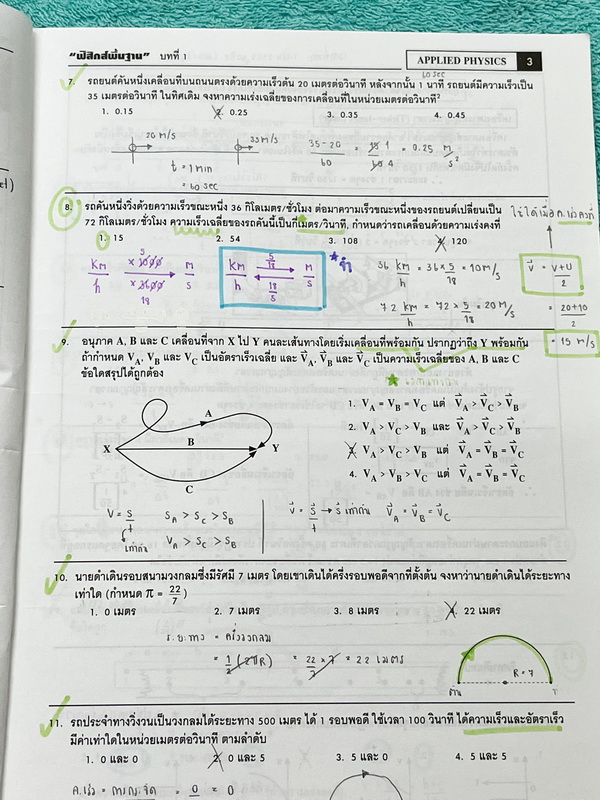 "ฟิสิกส์พื้นฐาน" บทที่ 1
APPLIED PHYSICS 3
60 sec
7. รถยนต์คันหนึ่งเคลื่อนที่บนถนนตรงด้วยความเร็วต้น 20 เมตรต่อวินาที หลังจากนั้น 1 นาที รถยนต์มีความเร็วเป็น
35 เมตรต่อวินาที ในทิศเดิม จงหาความเร่งเฉลี่ยของการเคลื่อนที่ในหน่วยเมตรต่อวินาที²
1. 0.15 2. 0.25 3. 0.35 4. 0.45
20 m/s 35 m/s
35-20 / 60 = 15 1 / 60 4 = 0.25 m/s²
t = 1 min
= 60 sec
8. รถคันหนึ่งวิ่งด้วยความเร็วขณะหนึ่ง 36 กิโลเมตร/ชั่วโมง ต่อมาความเร็วขณะหนึ่งของรถยนต์เปลี่ยนเป็น
72 กิโลเมตร/ชั่วโมง ความเร็วเฉลี่ยของรถคันนี้เป็นกี่เมตร/วินาที, กำหนดว่ารถเคลื่อนด้วยความเร่งคงที่
ใช้ได้เมื่อ ค.เร่งคงที่
1. 15 2. 54 3. 108 4. 120
km/h m/s
km/h 5/18 18/5 m/s
36 km/h = 36 × 5/18 = 10 m/s
72 km/h = 72 × 5/18 = 20 m/s
v = v+u / 2
= 20+10 / 2
= 15 m/s
9. อนุภาค A, B และ C เคลื่อนที่จาก X ไป Y คนละเส้นทางโดยเริ่มเคลื่อนที่พร้อมกัน ปรากฏว่าถึง Y พร้อมกัน
ถ้ากำหนด V_A, V_B และ V_C เป็นอัตราเร็วเฉลี่ย และ V⃗_A, V⃗_B และ V⃗_C เป็นความเร็วเฉลี่ยของ A, B และ C
ข้อใดสรุปได้ถูกต้อง
X A B C Y
1. V_A = V_B = V_C แต่ V⃗_A > V⃗_C > V⃗_B
2. V_A > V_C > V_B และ V⃗_A > V⃗_C > V⃗_B
3. V_A > V_C > V_B แต่ V⃗_A = V⃗_B = V⃗_C
4. V_A > V_B > V_C แต่ V⃗_A = V⃗_B = V⃗_C
V = S/t S_A > S_C > S_B
เท่ากัน V_A > S_C > S_B
v⃗ = s⃗/t → s⃗ เท่ากัน V⃗_A = V⃗_B = V⃗_C
10. นายดำเดินรอบสนามวงกลมซึ่งมีรัศมี 7 เมตร โดยเขาเดินได้ครึ่งรอบพอดีจากที่ตั้งต้น จงหาว่านายดำเดินได้ระยะทาง
เท่าใด (กำหนด π = 22/7)
1. 0 เมตร 2. 7 เมตร 3. 8 เมตร 4. 22 เมตร
ร.ย.ทาง = ครึ่งวงกลม
= 1/2 (2πR) = 22/7 × 7 = 22 เมตร
R = 7
11. รถประจำทางวิ่งวนเป็นวงกลมได้ระยะทาง 500 เมตร ได้ 1 รอบพอดี ใช้เวลา 100 วินาที ได้ความเร็วและอัตราเร็ว
มีค่าเท่าใดในหน่วยเมตรต่อวินาที ตามลำดับ
1. 0 และ 0 2. 0 และ 5 3. 5 และ 0 4. 5 และ 5
ค.เร็ว = การกระจัด = 0 = 0